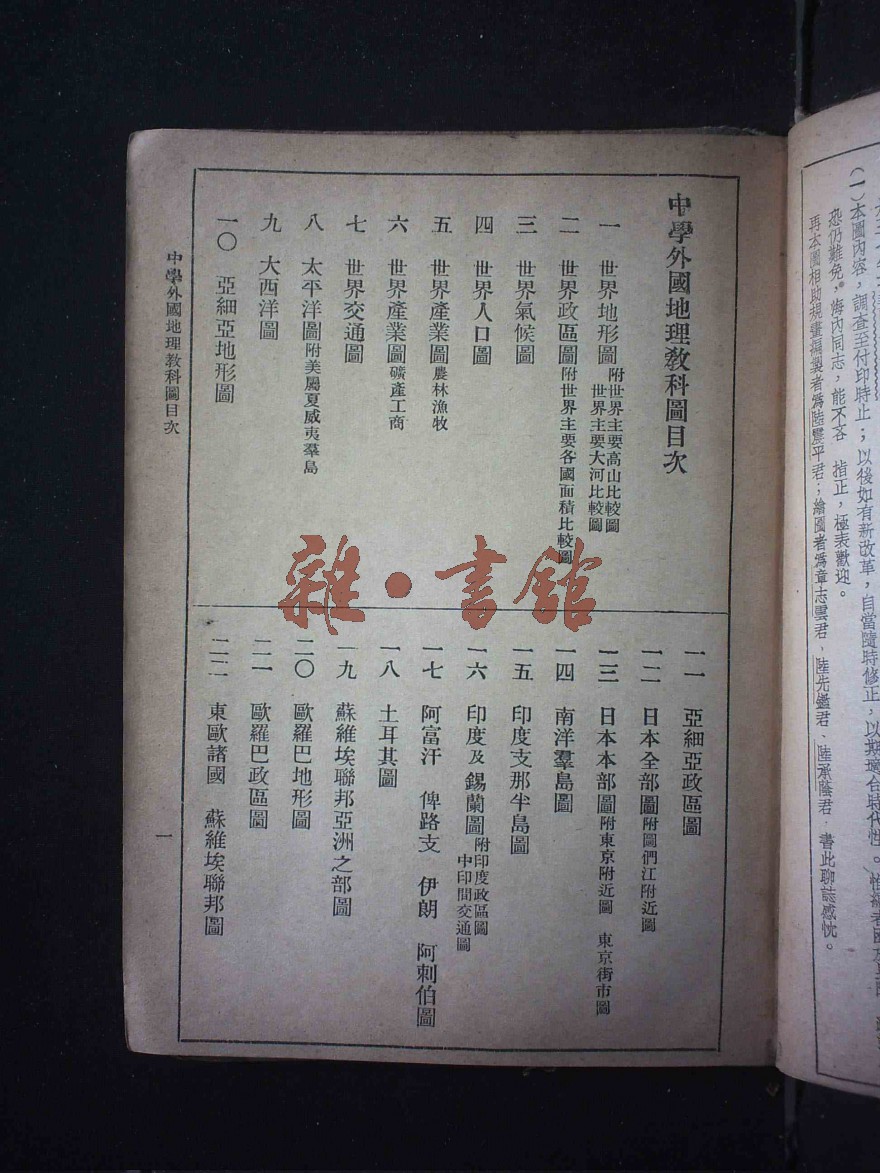 中學外國地理敎科圖目次
一 世界地形圖附世界主要高山比較圖
世界主要大河比較圖
二 世界政區圖附世界主要各國面積比較圖
三 世界氣候圖
四 世界人口圖
五 世界產業圖農林漁牧
六 世界產業圖礦產工商
七 世界交通圖
八 太平洋圖附美屬夏威夷羣島
九 大西洋圖
一〇 亞細亞地形圖
一一 亞細亞政區圖
一二 日本全部圖附圖們江附近圖
一三 日本本部圖附東京附近圖 東京街市圖
一四 南洋羣島圖
一五 印度支那半島圖
一六 印度及錫蘭圖附印度政區圖
中印間交通圖
一七 阿富汗 俾路支 伊朗 阿剌伯圖
一八 土耳其圖
一九 蘇維埃聯邦亞洲之部圖
二〇 歐羅巴地形圖
二一 歐羅巴政區圖
二二 東歐諸國 蘇維埃聯邦圖
中學外國地理敎科圖目次
一
雜·書館
(一)本圖內容，調查至付印時止；以後如有新改革，自當隨時修正，以期適合時代性。
恐仍難免。海內同志，能不吝 指正，極表歡迎。
再本圖相助規畫編製者爲陸震平君；繪圖者爲章志雲君、陸先鑑君、陸承蔭君．書此聊誌感忱。